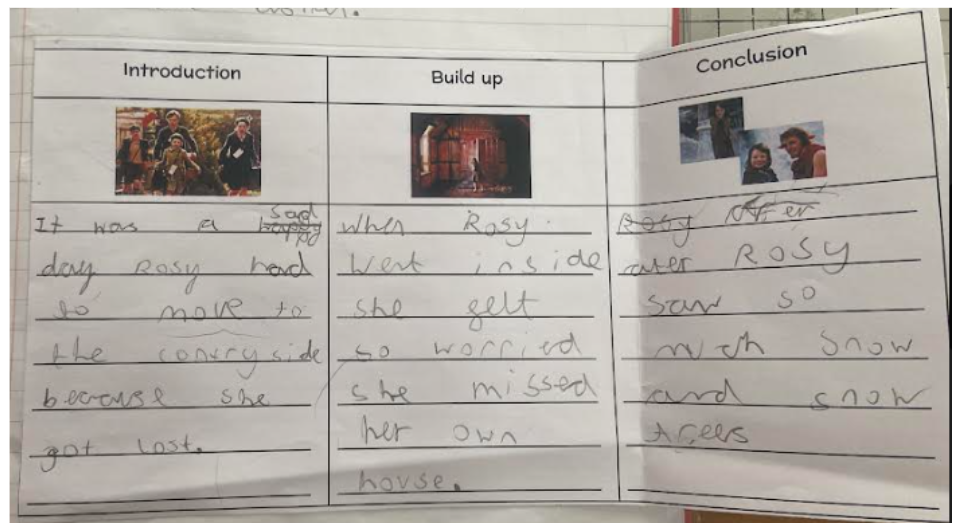 Introduction
It was a happy sad
day Rosy had
to move to
the contry side
because she
got lost.
Build up
when Rosy
went inside
she felt
so worried
she missed
her own
house.
Conclusion
Rosy After
ater Rosy
saw so
mch snow
and snow
trees